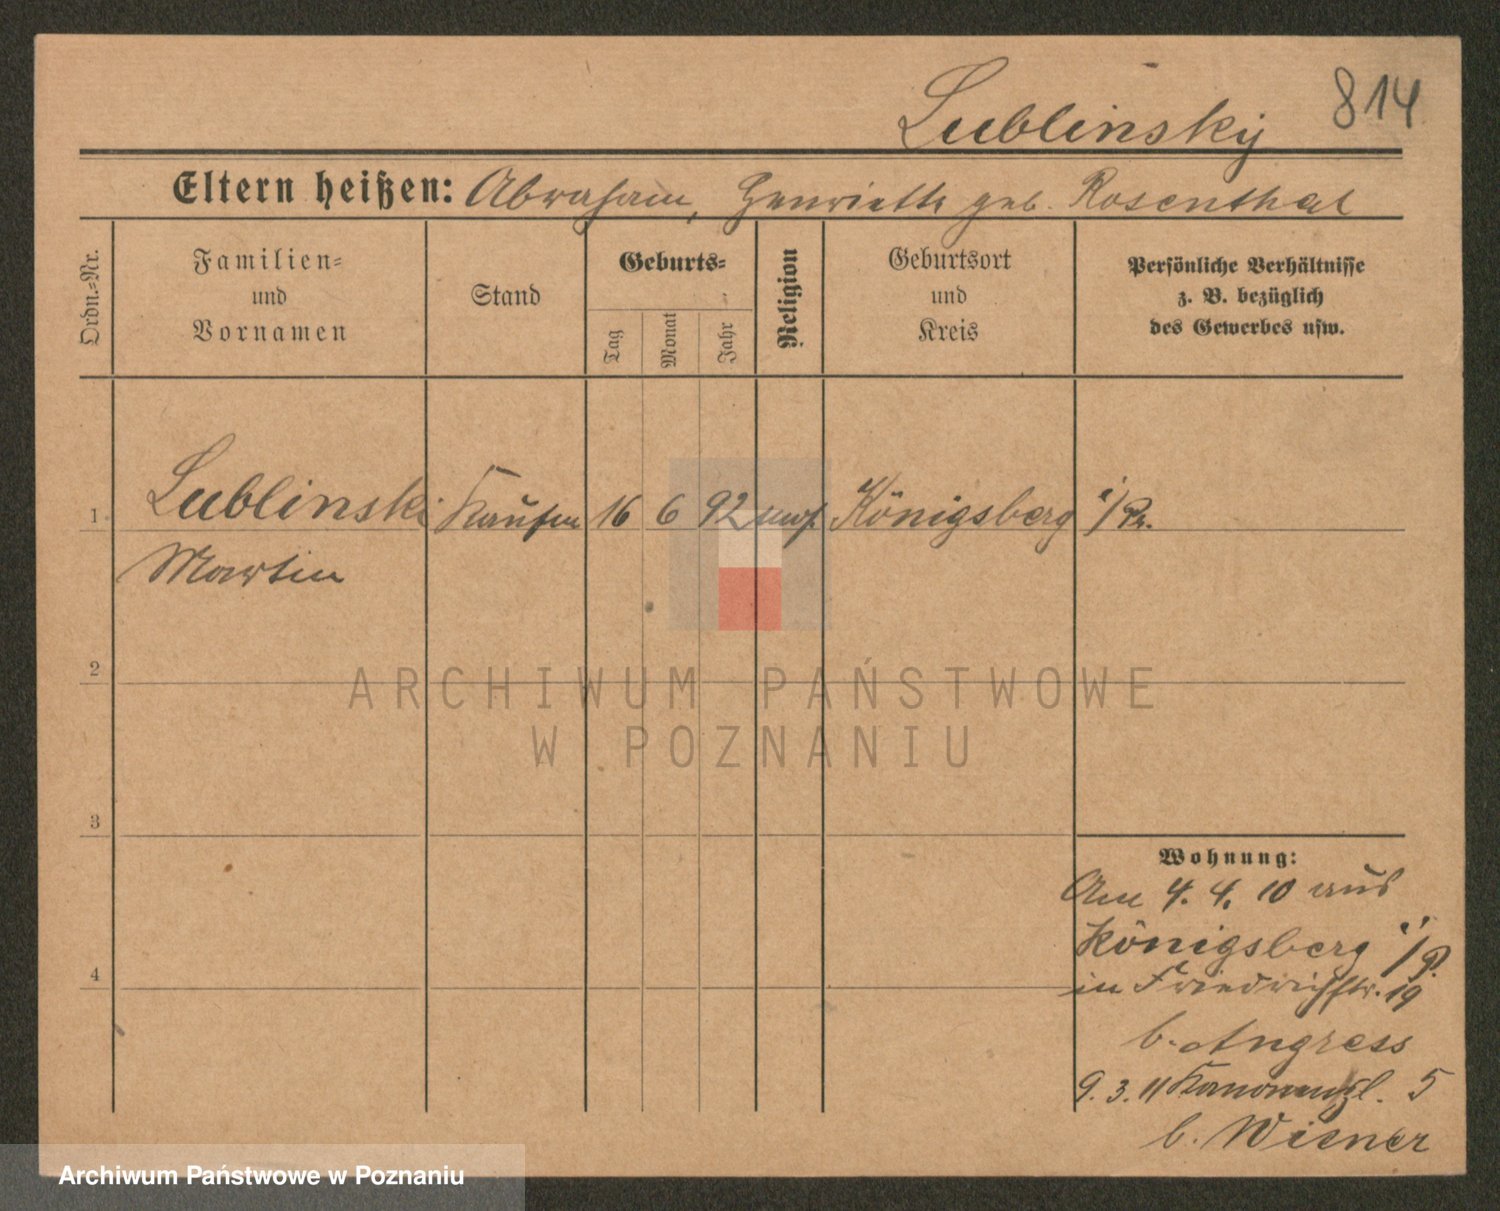 814
Lublinsky
Eltern heißen: Abraham, Henriette geb. Rosenthal
Ordn.-Nr.
Familien-
und
Vornamen
Stand
Geburts-
Tag
Monat
Jahr
Religion
Geburtsort
und
Kreis
Persönliche Verhältnisse
z. B. bezüglich
des Gewerbes usw.
1 Lublinski Kaufm 16 6 92 mos. Königsberg i/Pr.
Martin
2
3
4
Wohnung:
Am 4. 4. 10 aus
Königsberg i/P.
in Friedrichstr. 19
b. Angress
9. 3. 11 Kanonenpl. 5
b. Wisner
ARCHIWUM PAŃSTWOWE
W POZNANIU
Archiwum Państwowe w Poznaniu